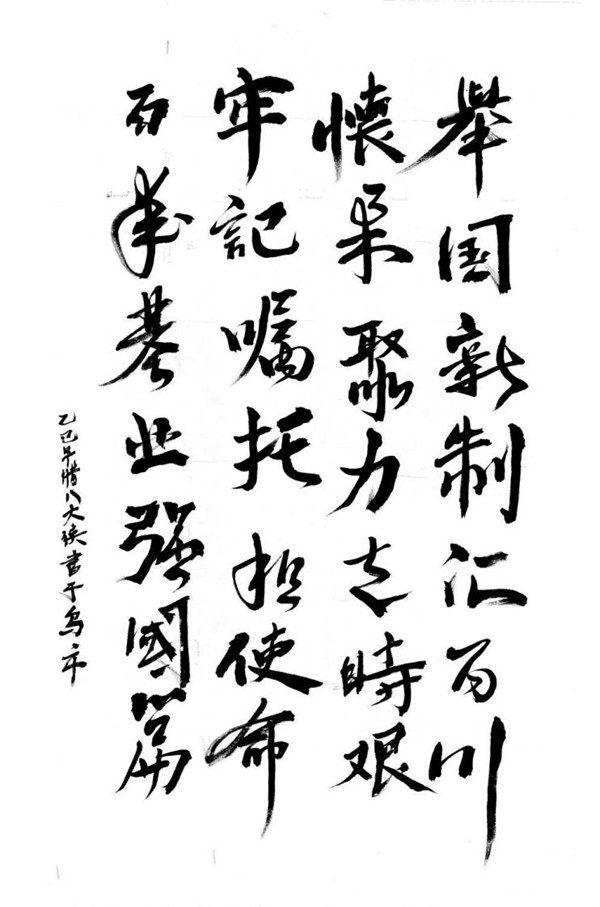 舉国新制汇百川
懷柔聚力克時艰
牢記嘱托担使命
百年基业强國篇
乙巳年腊八大侠書于乌市